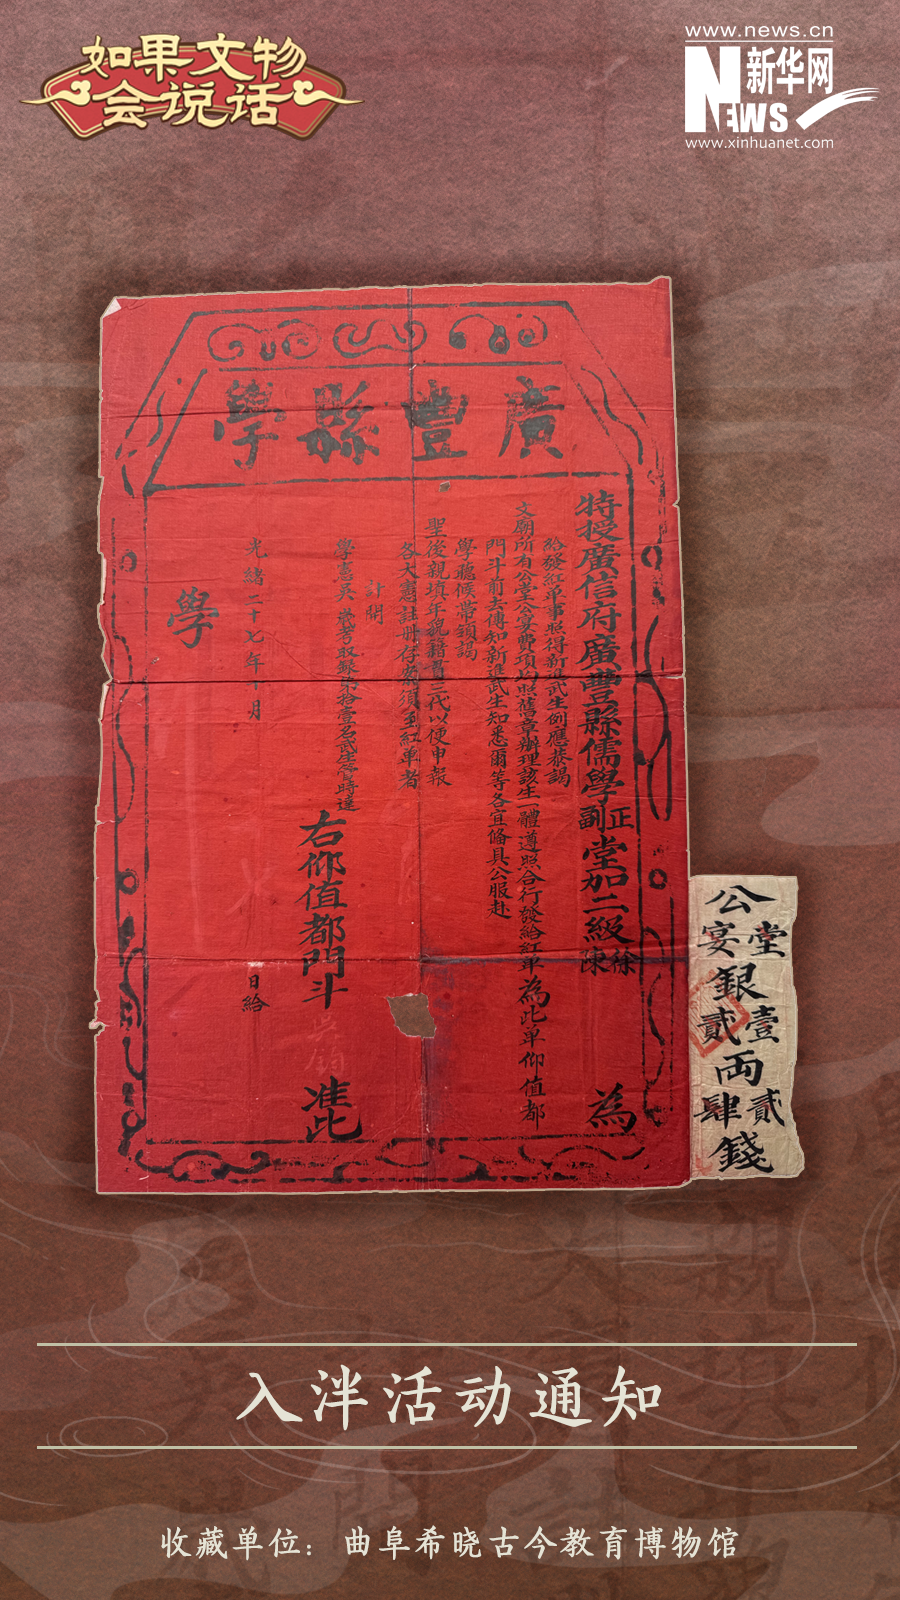 如果文物
会说话
www.news.cn
新华网
NEWS
www.xinhuanet.com
廣豐縣學
特授廣信府廣豐縣儒學正副堂加二級徐陳 為
給發紅單事照得新進武生例應恭謁
文廟所有公堂公宴費項均照舊章辦理該生一體遵照合行發給紅單為此单仰值都
門斗前去傳知新進武生知悉爾等各宜俻具公服赴
學聽候帶領謁
聖後親填年貌籍貫三代以便申報
各大憲註冊存案須至紅单者
計開
學憲吳 歲考取録第拾壹名武生管時達
右仰值都門斗 准此
光緒二十七年十月 日給
學
公堂宴銀壹貳兩貳肆錢
入泮活动通知
收藏单位：曲阜希晓古今教育博物馆